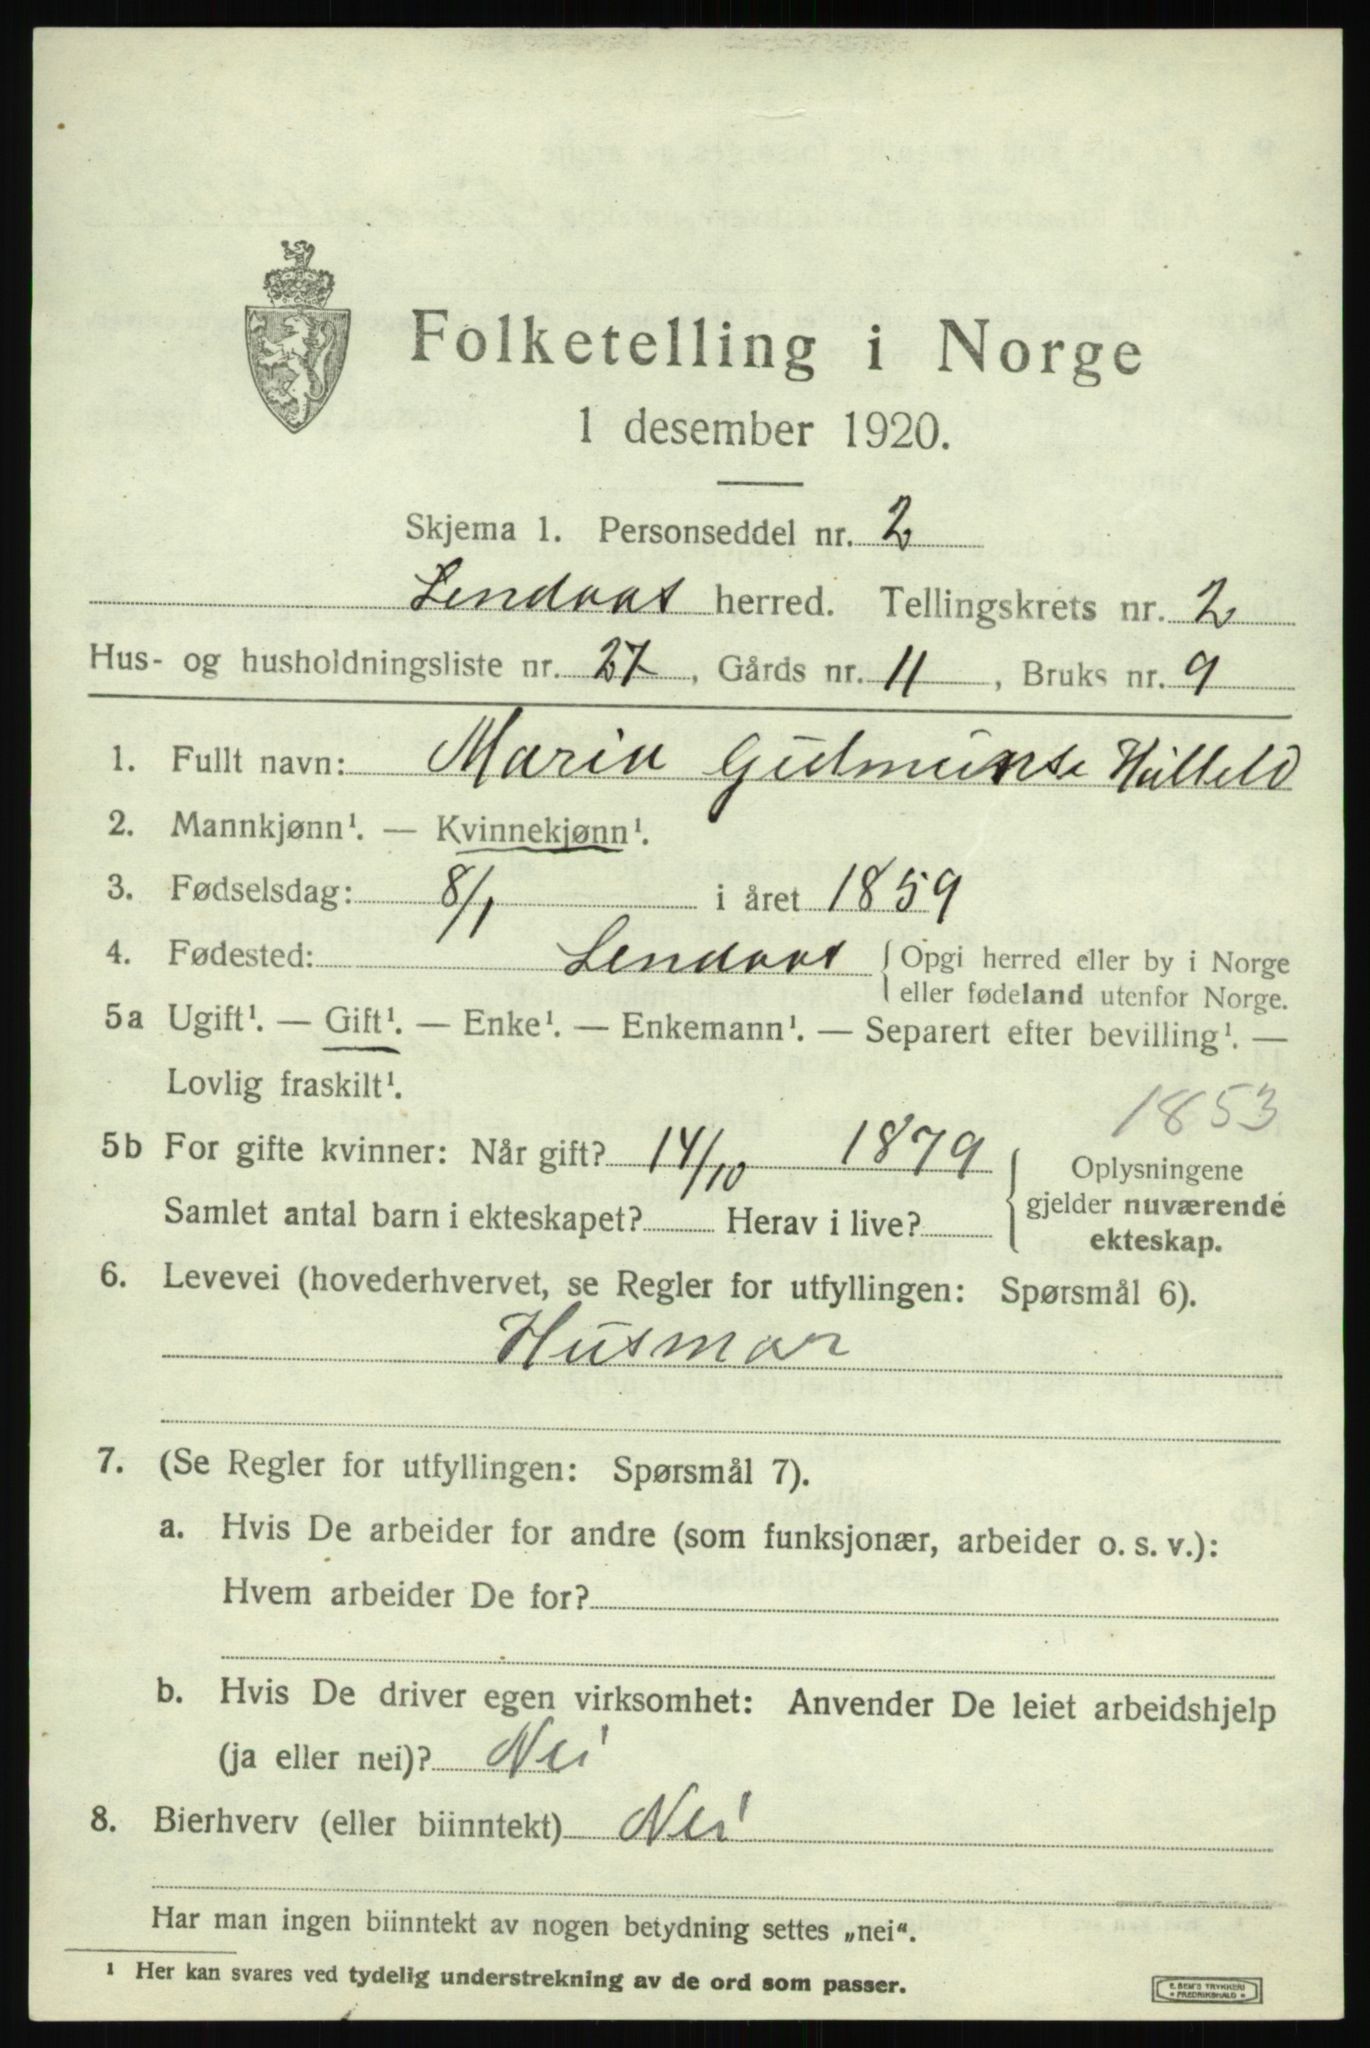 Folketelling i Norge
1 desember 1920.
Skjema 1. Personseddel nr. 2
Lendaas herred. Tellingskrets nr. 2
Hus- og husholdningsliste nr. 27, Gårds nr. 11, Bruks nr. 9
1. Fullt navn: Maria
2. Mannkjønn¹. — Kvinnekjønn¹.
3. Fødselsdag: 8/1 i året 1859
4. Fødested: Lendaas { Opgi herred eller by i Norge
eller fødeland utenfor Norge.
5a Ugift¹. — Gift¹. — Enke¹. — Enkemann¹. — Separert efter bevilling¹. —
Lovlig fraskilt¹.
1853
5b For gifte kvinner: Når gift? 14/10 1879 { Oplysningene
gjelder nuværende
Samlet antal barn i ekteskapet? Herav i live?
ekteskap.
6. Levevei (hovederhvervet, se Regler for utfyllingen: Spørsmål 6).
Husmor
7. (Se Regler for utfyllingen: Spørsmål 7).
a. Hvis De arbeider for andre (som funksjonær, arbeider o. s. v.):
Hvem arbeider De for?
b. Hvis De driver egen virksomhet: Anvender De leiet arbeidshjelp
(ja eller nei)? Nei
8. Bierhverv (eller biinntekt) Nei
Har man ingen biinntekt av nogen betydning settes „nei“.
¹ Her kan svares ved tydelig understrekning av de ord som passer.
E. SEM'S TRYKKERI
* FREDRIKSHALD *